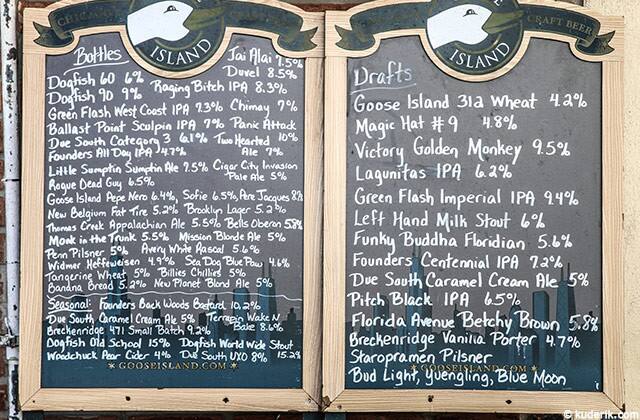 CHICAGO
ISLAND
Bottles
Jai Alai 7.5%
Dogfish 60 6% Duvel 8.5%
Dogfish 90 9% Raging Bitch IPA 8.3%
Green Flash West Coast IPA 7.3% Chimay 7%
Ballast Point Sculpin IPA 7% Panic Attack 10%
Due South Category 3 6.1% Two Hearted Ale 7%
Founders All Day IPA 4.7%
Little Sumptin Sumptin Ale 7.5% Cigar City Invasion Pale Ale 5%
Rogue Dead Guy 6.5%
Goose Island Pepe Nero 6.4%, Sofie 6.5%, Pere Jacques 8%
New Belgium Fat Tire 5.2% Brooklyn Lager 5.2%
Thomas Creek Appalachian Ale 5.5% Bells Oberon 5.8%
Monk in the Trunk 5.5% Mission Blonde Ale 5%
Penn Pilsner 5% Avery White Rascal 5.6%
Widmer Heffeweisen 4.9% Sea Dog Blue Paw 4.6%
Tangerine Wheat 5% Billies Chillies 5%
Banana Bread 5.2% New Planet Blond Ale 5%
Seasonal: Founders Back Woods Bastard, 10.2%
Due South Caramel Cream Ale 5% Terrapin Wake N Bake 8.6%
Breckenridge 471 Small Batch 9.2%
Dogfish Old School 15% Dogfish World Wide Stout 15.2%
Woodchuck Pear Cider 4% Due South UXO 8%
GOOSEISLAND.COM
CRAFT BEER
ISLAND
Drafts
Goose Island 312 Wheat 4.2%
Magic Hat #9 4.8%
Victory Golden Monkey 9.5%
Lagunitas IPA 6.2%
Green Flash Imperial IPA 9.4%
Left Hand Milk Stout 6%
Funky Buddha Floridian 5.6%
Founders Centennial IPA 7.2%
Due South Caramel Cream Ale 5%
Pitch Black IPA 6.5%
Florida Avenue Betchy Brown 5.8%
Breckenridge Vanilla Porter 4.7%
Staropramen Pilsner
GOOSEISLAND.COM
Bud Light, Yuengling, Blue Moon
© kuderik.com